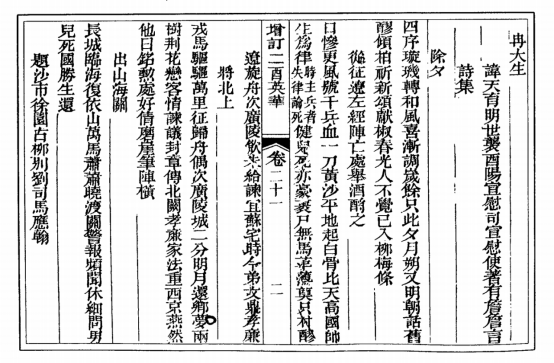 冉大生
諱天育明世襲酉陽宣慰司宣慰使著有詹詹言
詩集
除夕
四序璇璣轉和風喜漸調歲餘只此夕月朔又明朝話舊
醪傾柏祈新頌獻椒春光人不覺已入柳梅條
從征遼左經陣亡處舉酒酹之
日慘更風號千兵血一刀黃沙平地起白骨比天高國帥
生為律時主兵者失律論死健兒死亦豪裹尸無馬革薄奠只村醪
增訂二酉英華 卷二十一 二
遼旋舟次廣陵飲朱給諫宜蘇宅時令弟孜鼎孝廉
將北上
戎馬驅驅萬里征歸舟偶次廣陵城二分明月還鄉夢兩
樹荊花戀客情諫議封章傳北闕孝廉家法重西京燕然
他日銘勳處好倩磨崖筆陣橫
出山海關
長城臨海復依山萬馬蕭蕭曉渡關警報頻聞休細問男
兒死國勝生還
題沙市徐園古柳別劉司馬應翰